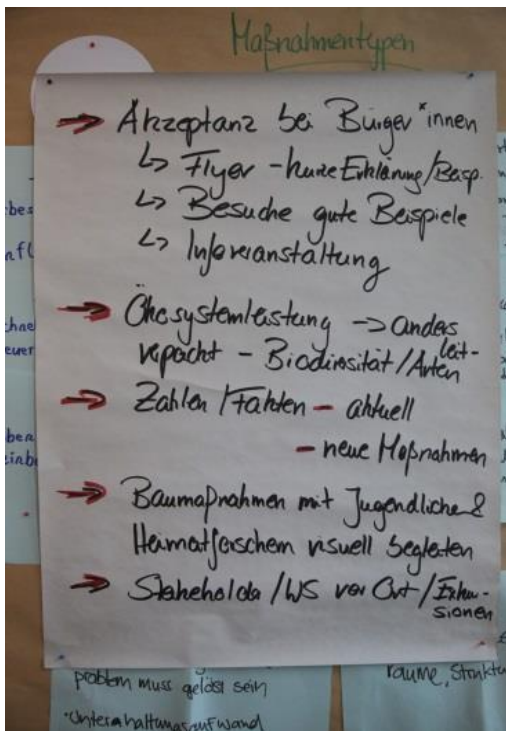 Maßnahmentypen
→ Akzeptanz bei Bürger*innen
↳ Flyer – kurze Erklärung/Beisp.
↳ Besuche gute Beispiele
↳ Infoveranstaltung
→ Ökosystemleistung → anders
verpackt – Biodiversität/Leit-
Arten
→ Zahlen/Fakten – aktuell
– neue Maßnahmen
→ Baumaßnahmen mit Jugendlichen &
Heimatforschern visuell begleiten
→ Stakeholder/WS vor Ort/Exkur-
sionen
problem muss gelöst sein
räume, Struktu
*Unterhaltungsaufwand